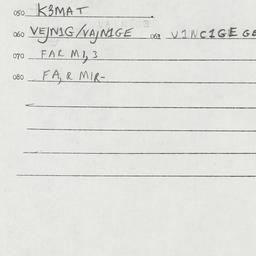 050 K3MAT
060 VEJN1G/VAJN1GE 061 V1NC1GE GE
070 FAR M1,3
080 FA, R MIR-